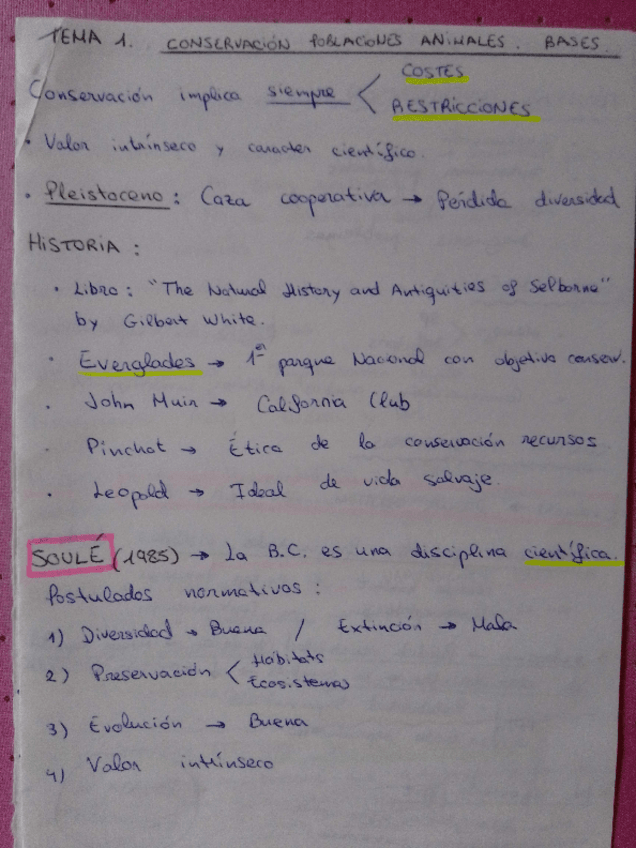 TEMA 1. CONSERVACIÓN POBLACIONES ANIMALES. BASES.
Conservación implica siempre < COSTES
RESTRICCIONES
· Valor intrínseco y caracter científico.
· Pleistoceno : Caza cooperativa → Pérdida diversidad
HISTORIA :
· Libro : "The Natural History and Antiquities of Selborne"
by Gilbert White.
· Everglades → 1er parque Nacional con objetivo conserv.
· John Muir → California Club
· Pinchot → Ética de la conservación recursos.
· Leopold → Ideal de vida salvaje.
SOULÉ (1985) → La B.C. es una disciplina científica.
Postulados normativos :
1) Diversidad → Buena / Extinción → Mala
2) Preservación < Hábitats
Ecosistemas
3) Evolución → Buena
4) Valor intrínseco